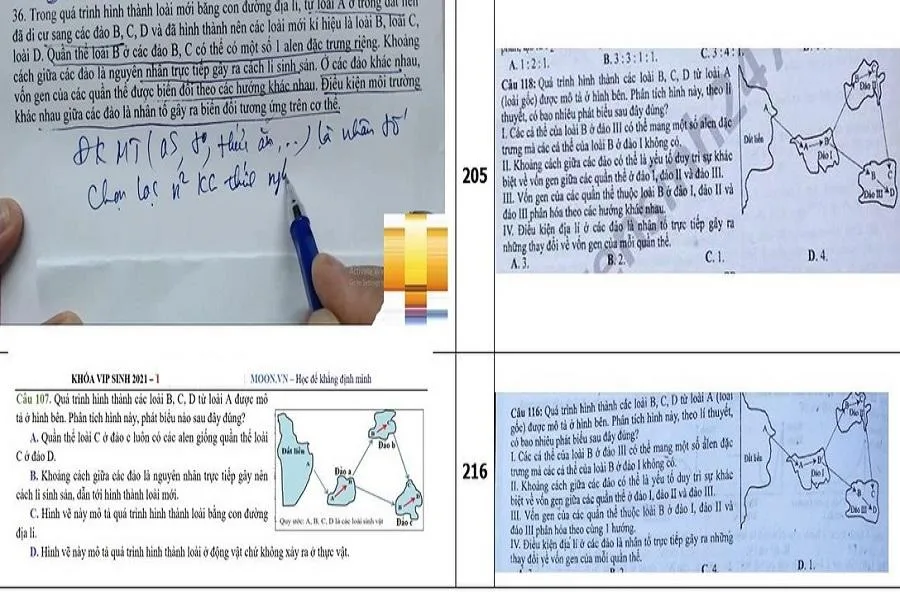 36. Trong quá trình hình thành loài mới bằng con đường địa lí, từ loài A ở trong đất liền
đã di cư sang các đảo B, C, D và đã hình thành nên các loài mới kí hiệu là loài B, loài C,
loài D. Quần thể loài B ở các đảo B, C có thể có một số 1 alen đặc trưng riêng. Khoảng
cách giữa các đảo là nguyên nhân trực tiếp gây ra cách li sinh sản. Ở các đảo khác nhau,
vốn gen của các quần thể được biến đổi theo các hướng khác nhau. Điều kiện môi trường
khác nhau giữa các đảo là nhân tố gây ra biến đổi tương ứng trên cơ thể.
ĐK MT (as, t°, thức ăn, ...) là nhân tố
Chọn lọc
Activate
Go to Settings
205
A. 1 : 2 : 1.
B. 3 : 3 : 1 : 1.
C. 3 : 4 : 1.
Câu 118: Quá trình hình thành các loài B, C, D từ loài A
(loài gốc) được mô tả ở hình bên. Phân tích hình này, theo lí
thuyết, có bao nhiêu phát biểu sau đây đúng?
I. Các cá thể của loài B ở đảo III có thể mang một số alen đặc
trưng mà các cá thể của loài B ở đảo I không có.
II. Khoảng cách giữa các đảo có thể là yếu tố duy trì sự khác
biệt về vốn gen giữa các quần thể ở đảo I, đảo II và đảo III.
III. Vốn gen của các quần thể thuộc loài B ở đảo I, đảo II và
đảo III phân hóa theo các hướng khác nhau.
IV. Điều kiện địa lí ở các đảo là nhân tố trực tiếp gây ra
những thay đổi về vốn gen của mỗi quần thể.
A. 3.
B. 2.
C. 1.
D. 4.
Đất liền
A D
Đảo I
B C
Đảo II
B C
Đảo III D
KHÓA VIP SINH 2021 – 1
MOON.VN – Học để khẳng định mình
Câu 107. Quá trình hình thành các loài B, C, D từ loài A được mô
tả ở hình bên. Phân tích hình này, phát biểu nào sau đây đúng?
A. Quần thể loài C ở đảo c luôn có các alen giống quần thể loài
C ở đảo D.
B. Khoảng cách giữa các đảo là nguyên nhân trực tiếp gây nên
cách li sinh sản, dẫn tới hình thành loài mới.
C. Hình vẽ này mô tả quá trình hình thành loài bằng con đường
địa lí.
D. Hình vẽ này mô tả quá trình hình thành loài ở động vật chứ không xảy ra ở thực vật.
Đất liền
A
Đảo a
Đảo b
Đảo c
Quy ước: A, B, C, D là các loài sinh vật
216
Câu 116: Quá trình hình thành các loài B, C, D từ loài A (loài
gốc) được mô tả ở hình bên. Phân tích hình này, theo lí thuyết,
có bao nhiêu phát biểu sau đây đúng?
I. Các cá thể của loài B ở đảo III có thể mang một số alen đặc
trưng mà các cá thể của loài B ở đảo I không có.
II. Khoảng cách giữa các đảo có thể là yếu tố duy trì sự khác
biệt về vốn gen giữa các quần thể ở đảo I, đảo II và đảo III.
III. Vốn gen của các quần thể thuộc loài B ở đảo I, đảo II và
đảo III phân hóa theo cùng 1 hướng.
IV. Điều kiện địa lí ở các đảo là nhân tố trực tiếp gây ra những
thay đổi về vốn gen của mỗi quần thể.
C. 4.
D. 1.
Đất liền
A D
Đảo I
Đảo II
B C
Đảo III D